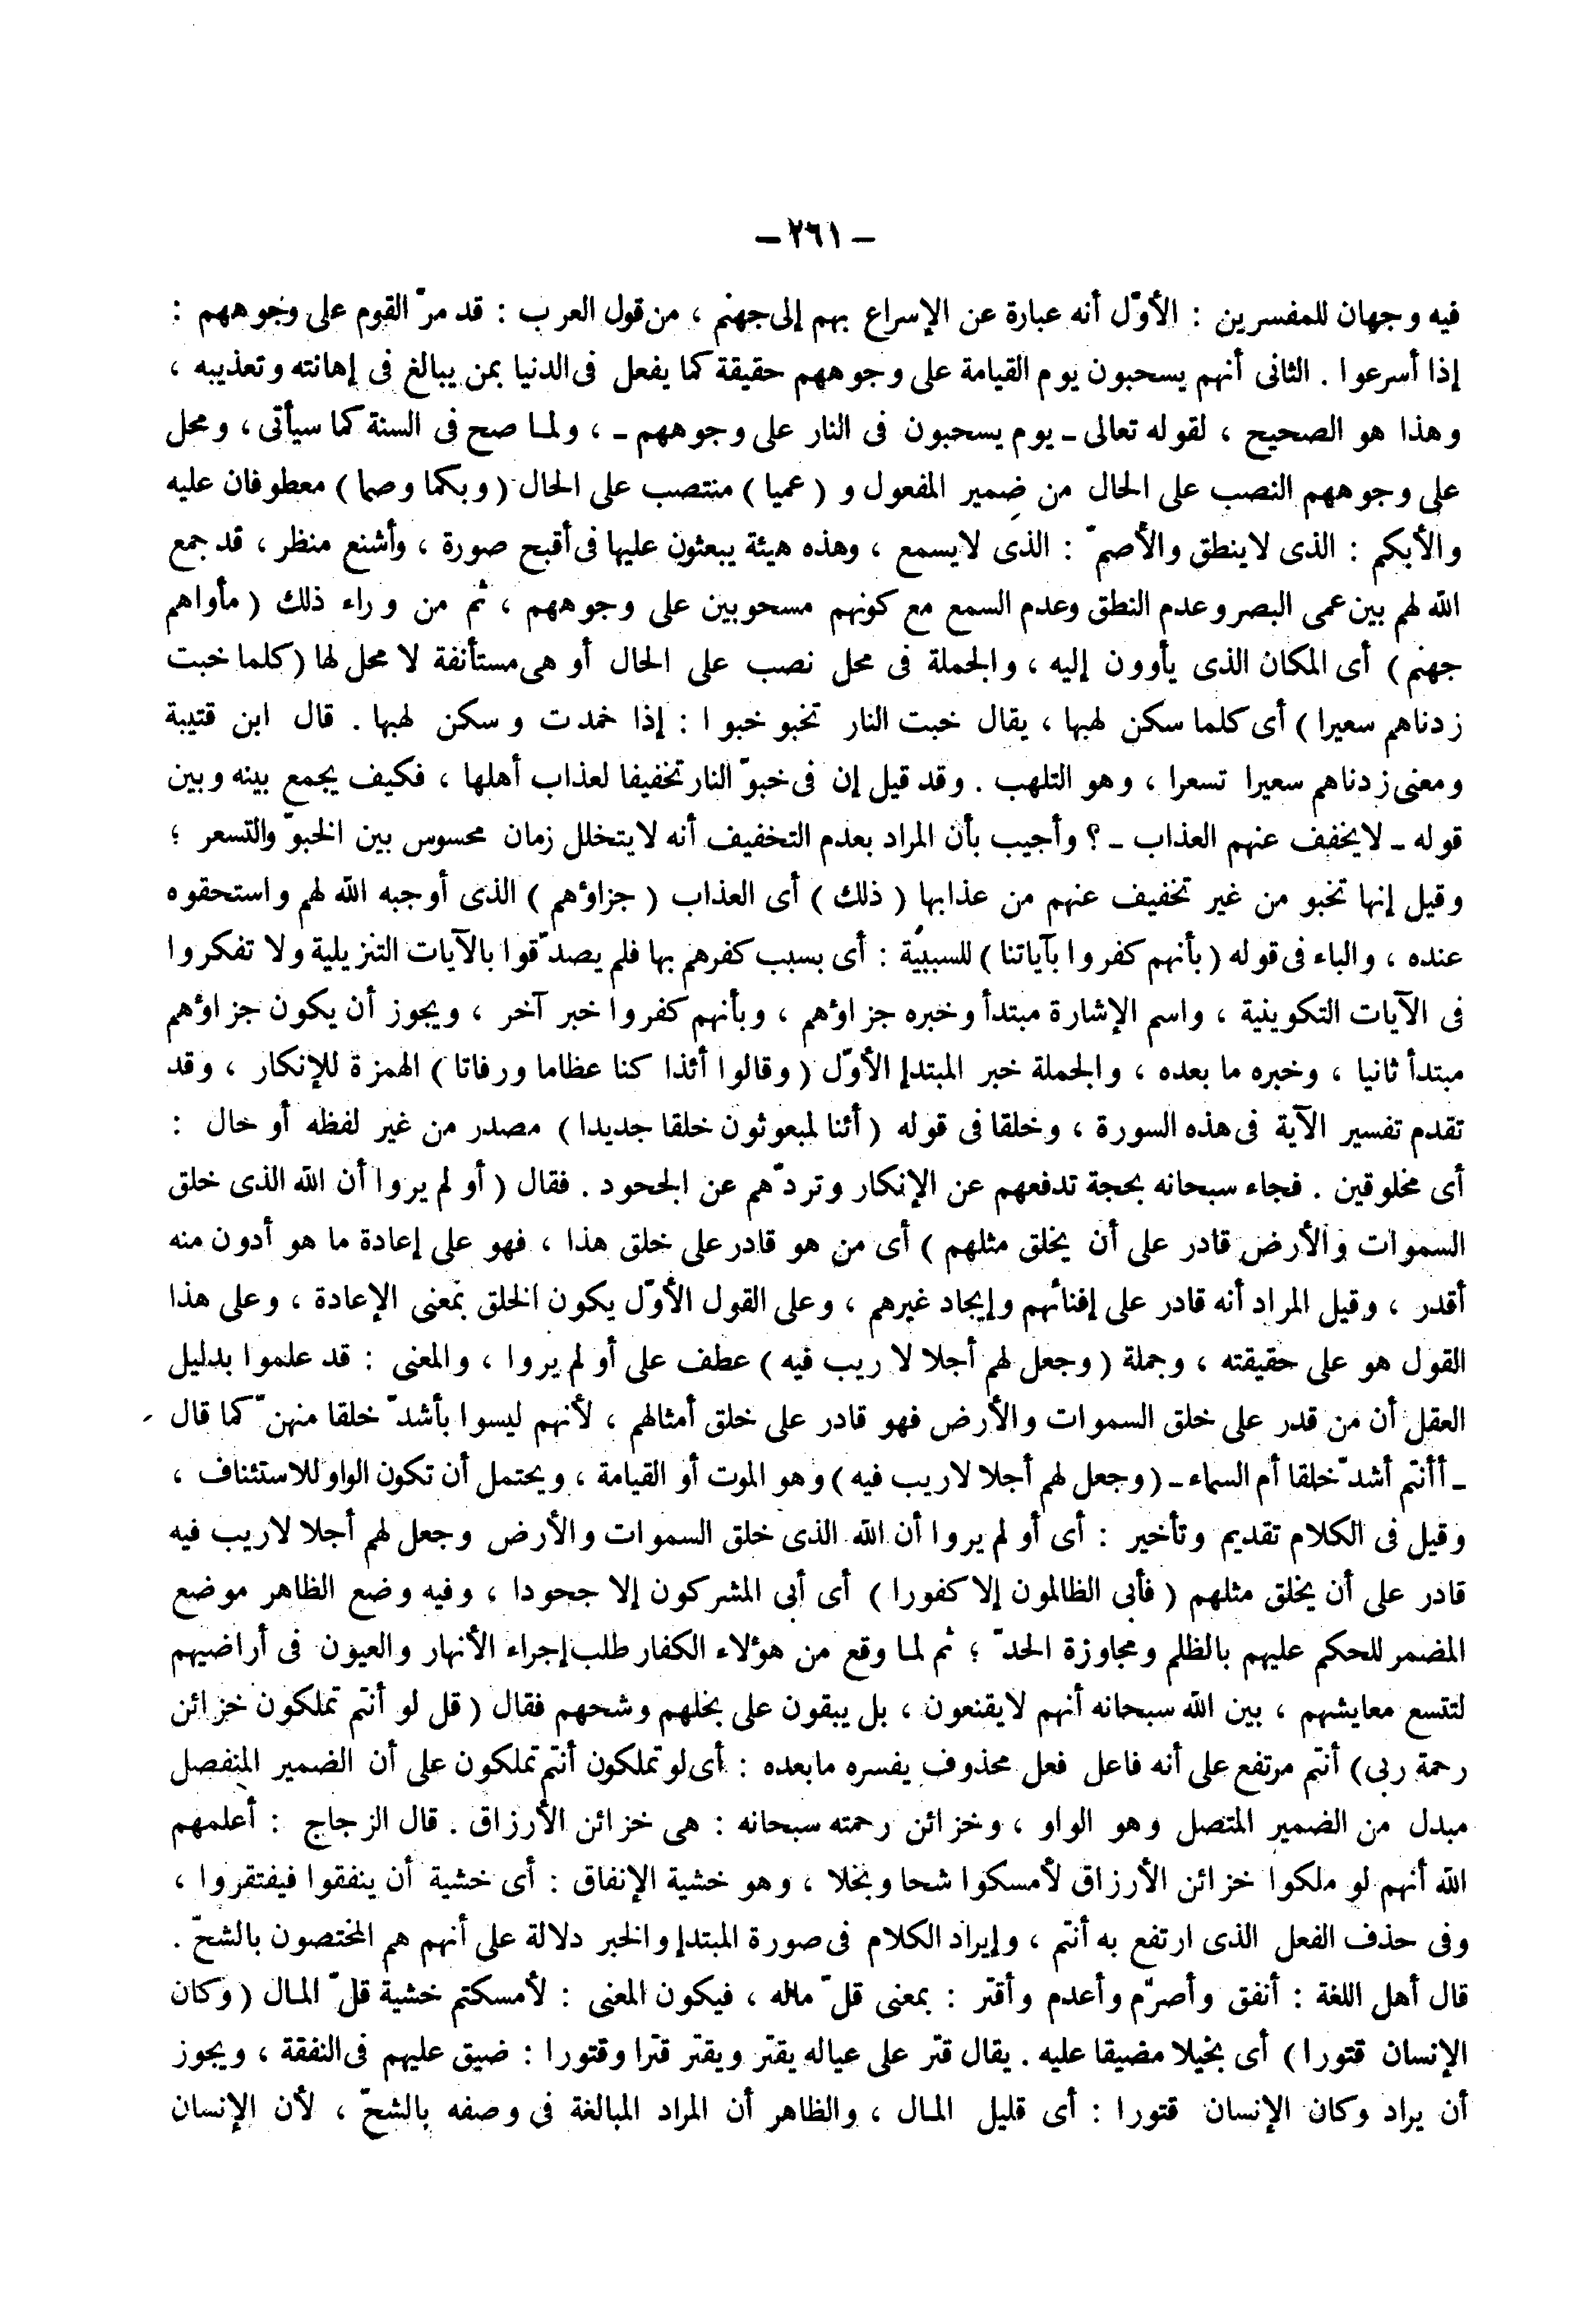 – ٢٦١ –
فيه وجهان للمفسرين : الأوّل أنه عبارة عن الإسراع بهم إلى جهنم ، من قول العرب : قد مرّ القوم على وجوههم :
إذا أسرعوا . الثانى أنهم يسحبون يوم القيامة على وجوههم حقيقة كما يفعل فى الدنيا بمن يبالغ فى إهانته وتعذيبه ،
وهذا هو الصحيح ، لقوله تعالى ـ يوم يسحبون فى النار على وجوههم ـ ، ولما صح فى السنة كما سيأتى ، ومحل
على وجوههم النصب على الحال من ضمير المفعول و ( عميا ) منتصب على الحال ( وبكما وصما ) معطوفان عليه
والأبكم : الذى لاينطق والأصمّ : الذى لايسمع ، وهذه هيئة يبعثون عليها فى أقبح صورة ، وأشنع منظر ، قد جمع
الله لهم بين عمى البصر وعدم النطق وعدم السمع مع كونهم مسحوبين على وجوههم ، ثم من وراء ذلك ( مأواهم
جهنم ) أى المكان الذى يأوون إليه ، والجملة فى محل نصب على الحال أو هى مستأنفة لا محل لها ( كلما خبت
زدناهم سعيرا ) أى كلما سكن لهبها ، يقال خبت النار تخبو خبوا : إذا خمدت وسكن لهبها . قال ابن قتيبة
ومعنى زدناهم سعيرا تسعرا ، وهو التلهب . وقد قيل إن فى خبوّ النار تخفيفا لعذاب أهلها ، فكيف يجمع بينه وبين
قوله ـ لايخفف عنهم العذاب ـ ؟ وأجيب بأن المراد بعدم التخفيف أنه لايتخلل زمان محسوس بين الخبوّ والتسعر ؛
وقيل إنها تخبو من غير تخفيف عنهم من عذابها ( ذلك ) أى العذاب ( جزاؤهم ) الذى أوجبه الله لهم واستحقوه
عنده ، والباء فى قوله ( بأنهم كفروا بآياتنا ) للسببية : أى بسبب كفرهم بها فلم يصدّقوا بالآيات التنزيلية ولا تفكروا
فى الآيات التكوينية ، واسم الإشارة مبتدأ وخبره جزاؤهم ، وبأنهم كفروا خبر آخر ، ويجوز أن يكون جزاؤهم
مبتدأ ثانيا ، وخبره ما بعده ، والجملة خبر المبتدإ الأوّل ( وقالوا أئذا كنا عظاما ورفاتا ) الهمزة للإنكار ، وقد
تقدم تفسير الآية فى هذه السورة ، وخلقا فى قوله ( أئنا لمبعوثون خلقا جديدا ) مصدر من غير لفظه أو حال :
أى مخلوقين . فجاء سبحانه بحجة تدفعهم عن الإنكار وتردّهم عن الجحود . فقال ( أو لم يروا أن الله الذى خلق
السموات والأرض قادر على أن يخلق مثلهم ) أى من هو قادر على خلق هذا ، فهو على إعادة ما هو أدون منه
أقدر ، وقيل المراد أنه قادر على إفنائهم وإيجاد غيرهم ، وعلى القول الأوّل يكون الخلق بمعنى الإعادة ، وعلى هذا
القول هو على حقيقته ، وجملة ( وجعل لهم أجلا لا ريب فيه ) عطف على أو لم يروا ، والمعنى : قد علموا بدليل
العقل أن من قدر على خلق السموات والأرض فهو قادر على خلق أمثالهم ، لأنهم ليسوا بأشدّ خلقا منهنّ كما قال
ـ أأنتم أشدّ خلقا أم السماء ـ ( وجعل لهم أجلا لاريب فيه ) وهو الموت أو القيامة ، ويحتمل أن تكون الواو للاستئناف ،
وقيل فى الكلام تقديم وتأخير : أى أو لم يروا أن الله الذى خلق السموات والأرض وجعل لهم أجلا لاريب فيه
قادر على أن يخلق مثلهم ( فأبى الظالمون إلا كفورا ) أى أبى المشركون إلا جحودا ، وفيه وضع الظاهر موضع
المضمر للحكم عليهم بالظلم ومجاوزة الحدّ ؛ ثم لما وقع من هؤلاء الكفار طلب إجراء الأنهار والعيون فى أراضيهم
لتتسع معايشهم ، بين الله سبحانه أنهم لايقنعون ، بل يبقون على بخلهم وشحهم فقال ( قل لو أنتم تملكون خزائن
رحمة ربى ) أنتم مرتفع على أنه فاعل فعل محذوف يفسره مابعده : أى لو تملكون أنتم تملكون على أن الضمير المنفصل
مبدل من الضمير المتصل وهو الواو ، وخزائن رحمته سبحانه : هى خزائن الأرزاق . قال الزجاج : أعلمهم
الله أنهم لو ملكوا خزائن الأرزاق لأمسكوا شحا وبخلا ، وهو خشية الإنفاق : أى خشية أن ينفقوا فيفتقروا ،
وفى حذف الفعل الذى ارتفع به أنتم ، وإيراد الكلام فى صورة المبتدإ والخبر دلالة على أنهم هم المختصون بالشحّ .
قال أهل اللغة : أنفق وأصرّم وأعدم وأقتر : بمعنى قلّ ماله ، فيكون المعنى : لأمسكتم خشية قلّ المال ( وكان
الإنسان قتورا ) أى بخيلا مضيقا عليه . يقال قتر على عياله يقتر ويقتر قترا وقتورا : ضيق عليهم فى النفقة ، ويجوز
أن يراد وكان الإنسان قتورا : أى قليل المال ، والظاهر أن المراد المبالغة فى وصفه بالشحّ ، لأن الإنسان